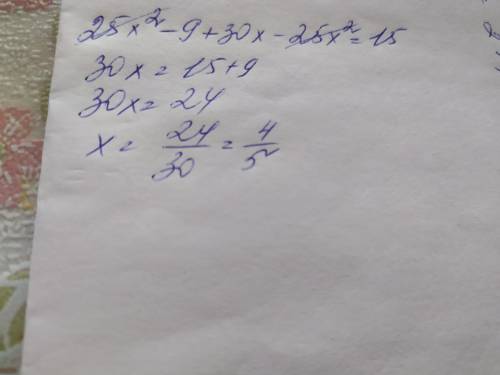 25x² - 9 + 30x - 25x² = 15
30x = 15 + 9
30x = 24
x = 24/30 = 4/5